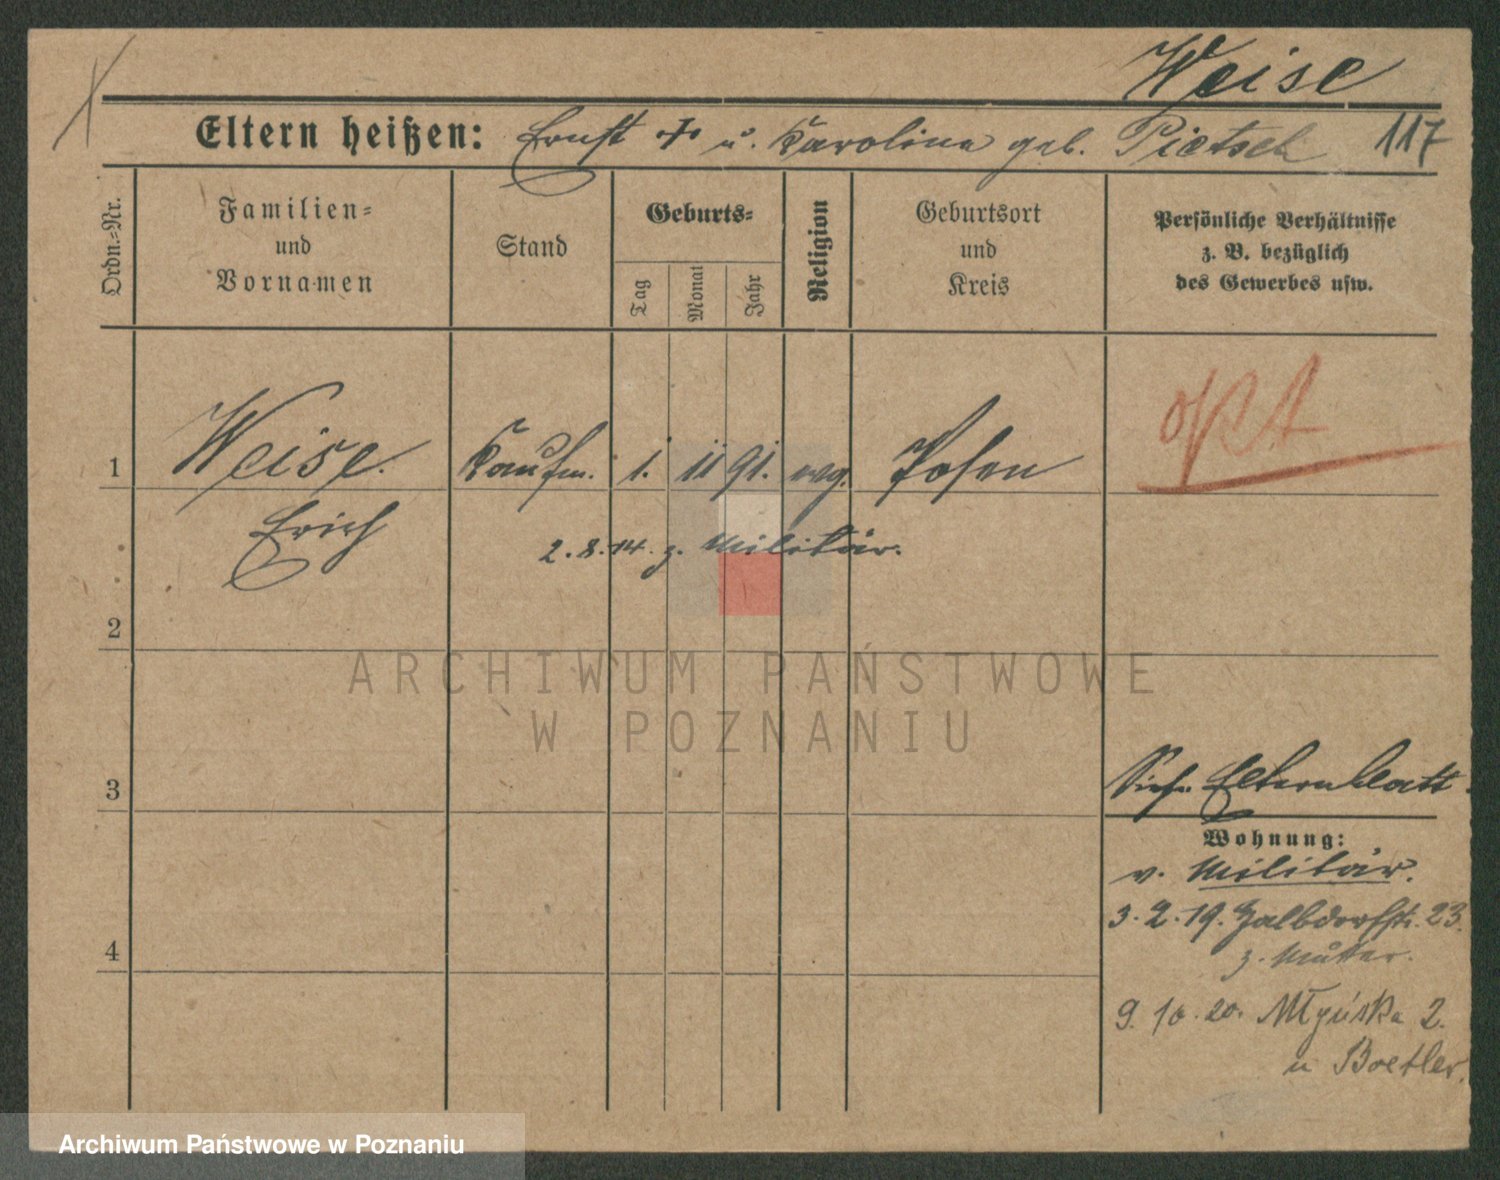 Weise
Eltern heißen: Ernst † u. Karolina geb. Pietsch 117
Ordn.=Nr.
Familien=
und
Vornamen
Stand
Geburts=
Tag
Monat
Jahr
Religion
Geburtsort
und
Kreis
Persönliche Verhältnisse
z. B. bezüglich
des Gewerbes usw.
1 Weise. Kaufm. 1. 11 91. evg. Posen
Erich
2. 8. 14. z. Militär.
2
3
4
Siehe Elternblatt.
Wohnung:
v. Militär.
3. 2. 19. 23.
z. Mutter.
9. 10. 20. Młyńska 2.
u Boetler.
ARCHIWUM PAŃSTWOWE
W POZNANIU
Archiwum Państwowe w Poznaniu